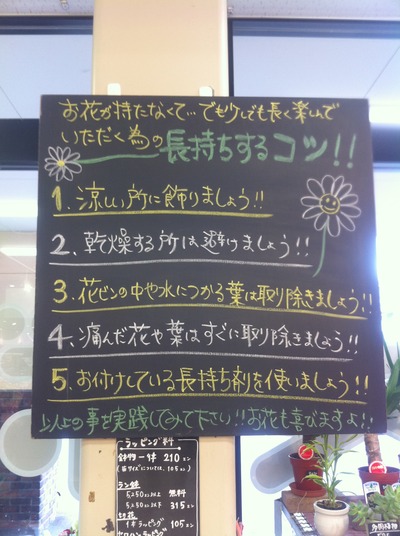 お花が持たなくて…でも少しでも長く楽しんで
いただく為の長持ちするコツ!!
1. 涼しい所に飾りましょう!!
2. 乾燥する所は避けましょう!!
3. 花ビンの中や水につかる葉は取り除きましょう!!
4. 痛んだ花や葉はすぐに取り除きましょう!!
5. お付けしている長持ち剤を使いましょう!!
以上の事を実践してみて下さい!!お花も喜びますよ!!
ラッピング料
鉢物一律 210エン
ラン鉢
5250エン以上 無料
5250エン以下 315エン
切花
1本ラッピング 105エン